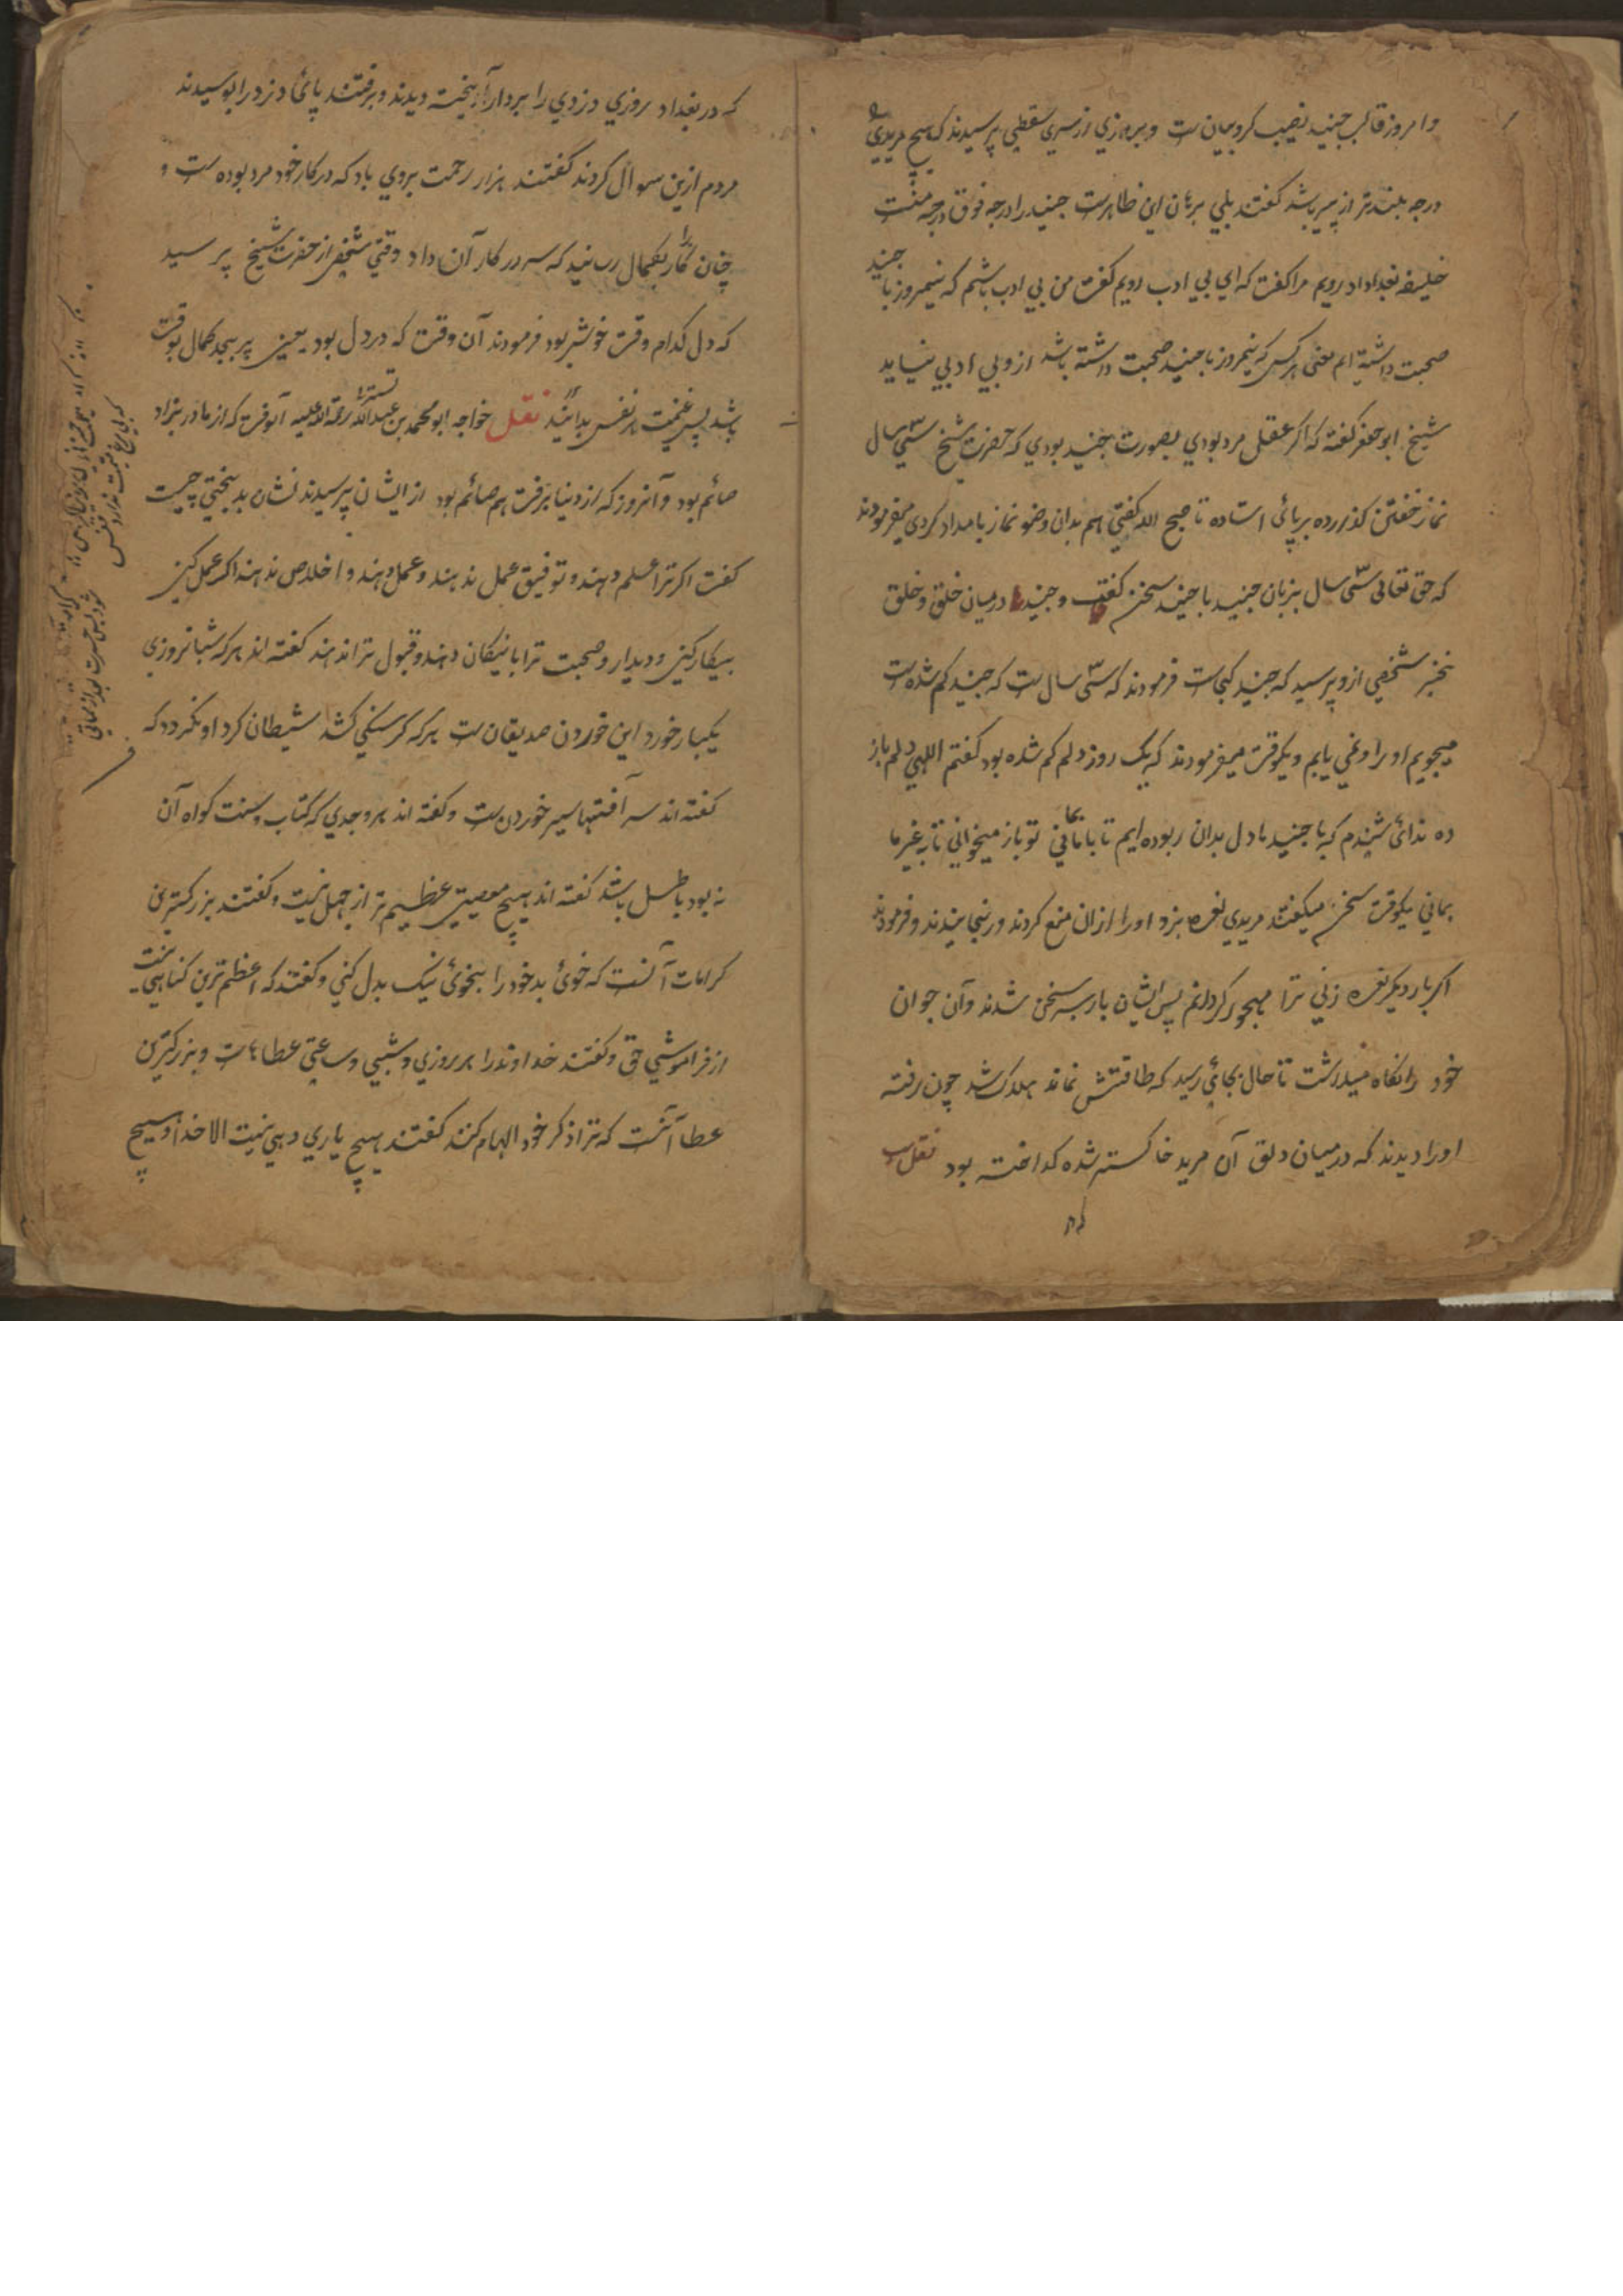 وامروز قالب جنید نصیب کروبیان ست وبروزي از سري سقطي پرسیدند که هیچ مریدي
درجه بلندتر از پیر باشد گفتند بلي برهان این ظاهرست جنید را درجه فوق درجه منست
خلیفه بغداد رویم را گفت که اي بي ادب رویم گفت من بي ادب باشم که نیمروز با جنید
صحبت داشته ام معني هر کس که نیمروز با جنید صحبت داشته باشد ازو بي ادبي نیاید
شیخ ابو جعفر گفته که اگر عقل مرد بودي بصورت جنید بودي که حضرت شیخ سي سال
نماز خفتن گذارده بر پائ استاده تا صبح الله گفتي هم بدان وضو نماز بامداد کردي میفرمودند
که حق تعالی سي سال بزبان جنید با جنید سخن گفت و جنید در میان خلق و خلق
بخبر شخصي ازو پرسید که جنید کجاست فرمودند که سي سال ست که جنید گم شده ست
میجویم او را و نمي یابم و یکوقت میفرمودند که یک روز دلم گم شده بود گفتم الهي دلم باز
ده ندائ شنیدم که یا جنید ما دل بدان ربوده ایم تا با ما بماني تو باز میخواني تا بغیر ما
بماني یکوقت سخن میگفتند مریدي نعره بزد او را از آن منع کردند و رنجانیدند و فرمودند
اگر بار دیگر نعره زني ترا مهجور گردانم پس ایشان باز بسر سخن شدند و آن جوان
خود را نگاه میداشت تا حال بجائي رسید که طاقتش نماند هلاک شد چون رفته
او را دیدند که در میان دلق آن مرید خاکستر شده گداخته بود نقلست
که در بغداد روزي دزدي را بر دار آویخته دیدند و برفتند پائ دزد را بوسیدند
مردم ازین سوال کردند گفتند هزار رحمت بروي باد که در کار خود مرد بوده ست و
چنان کار را بکمال رسانید که سر در کار آن داد وقتي شخصي از حضرت شیخ پرسید
که دل کدام وقت خوش بود فرمودند آن وقت که در دل بود یعني پر بمجد کمال بوقت
باشد پس غنیمت هر نفس بدانید نقل خواجه ابو محمد بن عبدالله تستري رحمة الله علیه آنوقت که از مادر بزاد
صائم بود و آنروز که از دنیا برفت هم صائم بود از ایشان پرسیدند نشان بدبختي چیست
گفت اگر ترا علم دهند و توفیق عمل ندهند و عمل دهند و اخلاص ندهند اگر عمل کني
بیکار کني و دیدار و صحبت ترا با نیکان دهند و قبول ترا ندهند گفته اند هر که شبانروزي
یکبار خورد این خوردن صدیقان ست هر که گرسنگي کشد شیطان گرد او نگردد که
گفته اند سر آفتها سیر خوردن ست و گفته اند هر وجدي که کتاب و سنت گواه آن
نه بود باطل باشد گفته اند هیچ معصیتي عظیم تر از جهل نیست و گفتند بزرگترین
کرامات آنست که خوئ بد خود را بخوئ نیک بدل کني و گفتند که اعظم ترین گناهي نیست
از فراموشي حق و گفتند خداوند را بر روزي و شبي و ساعتي عطاهاست و بزرگترین
عطا آنست که ترا ذکر خود الهام کند گفتند هیچ یاري دهي نیست الا خدا و هیچ